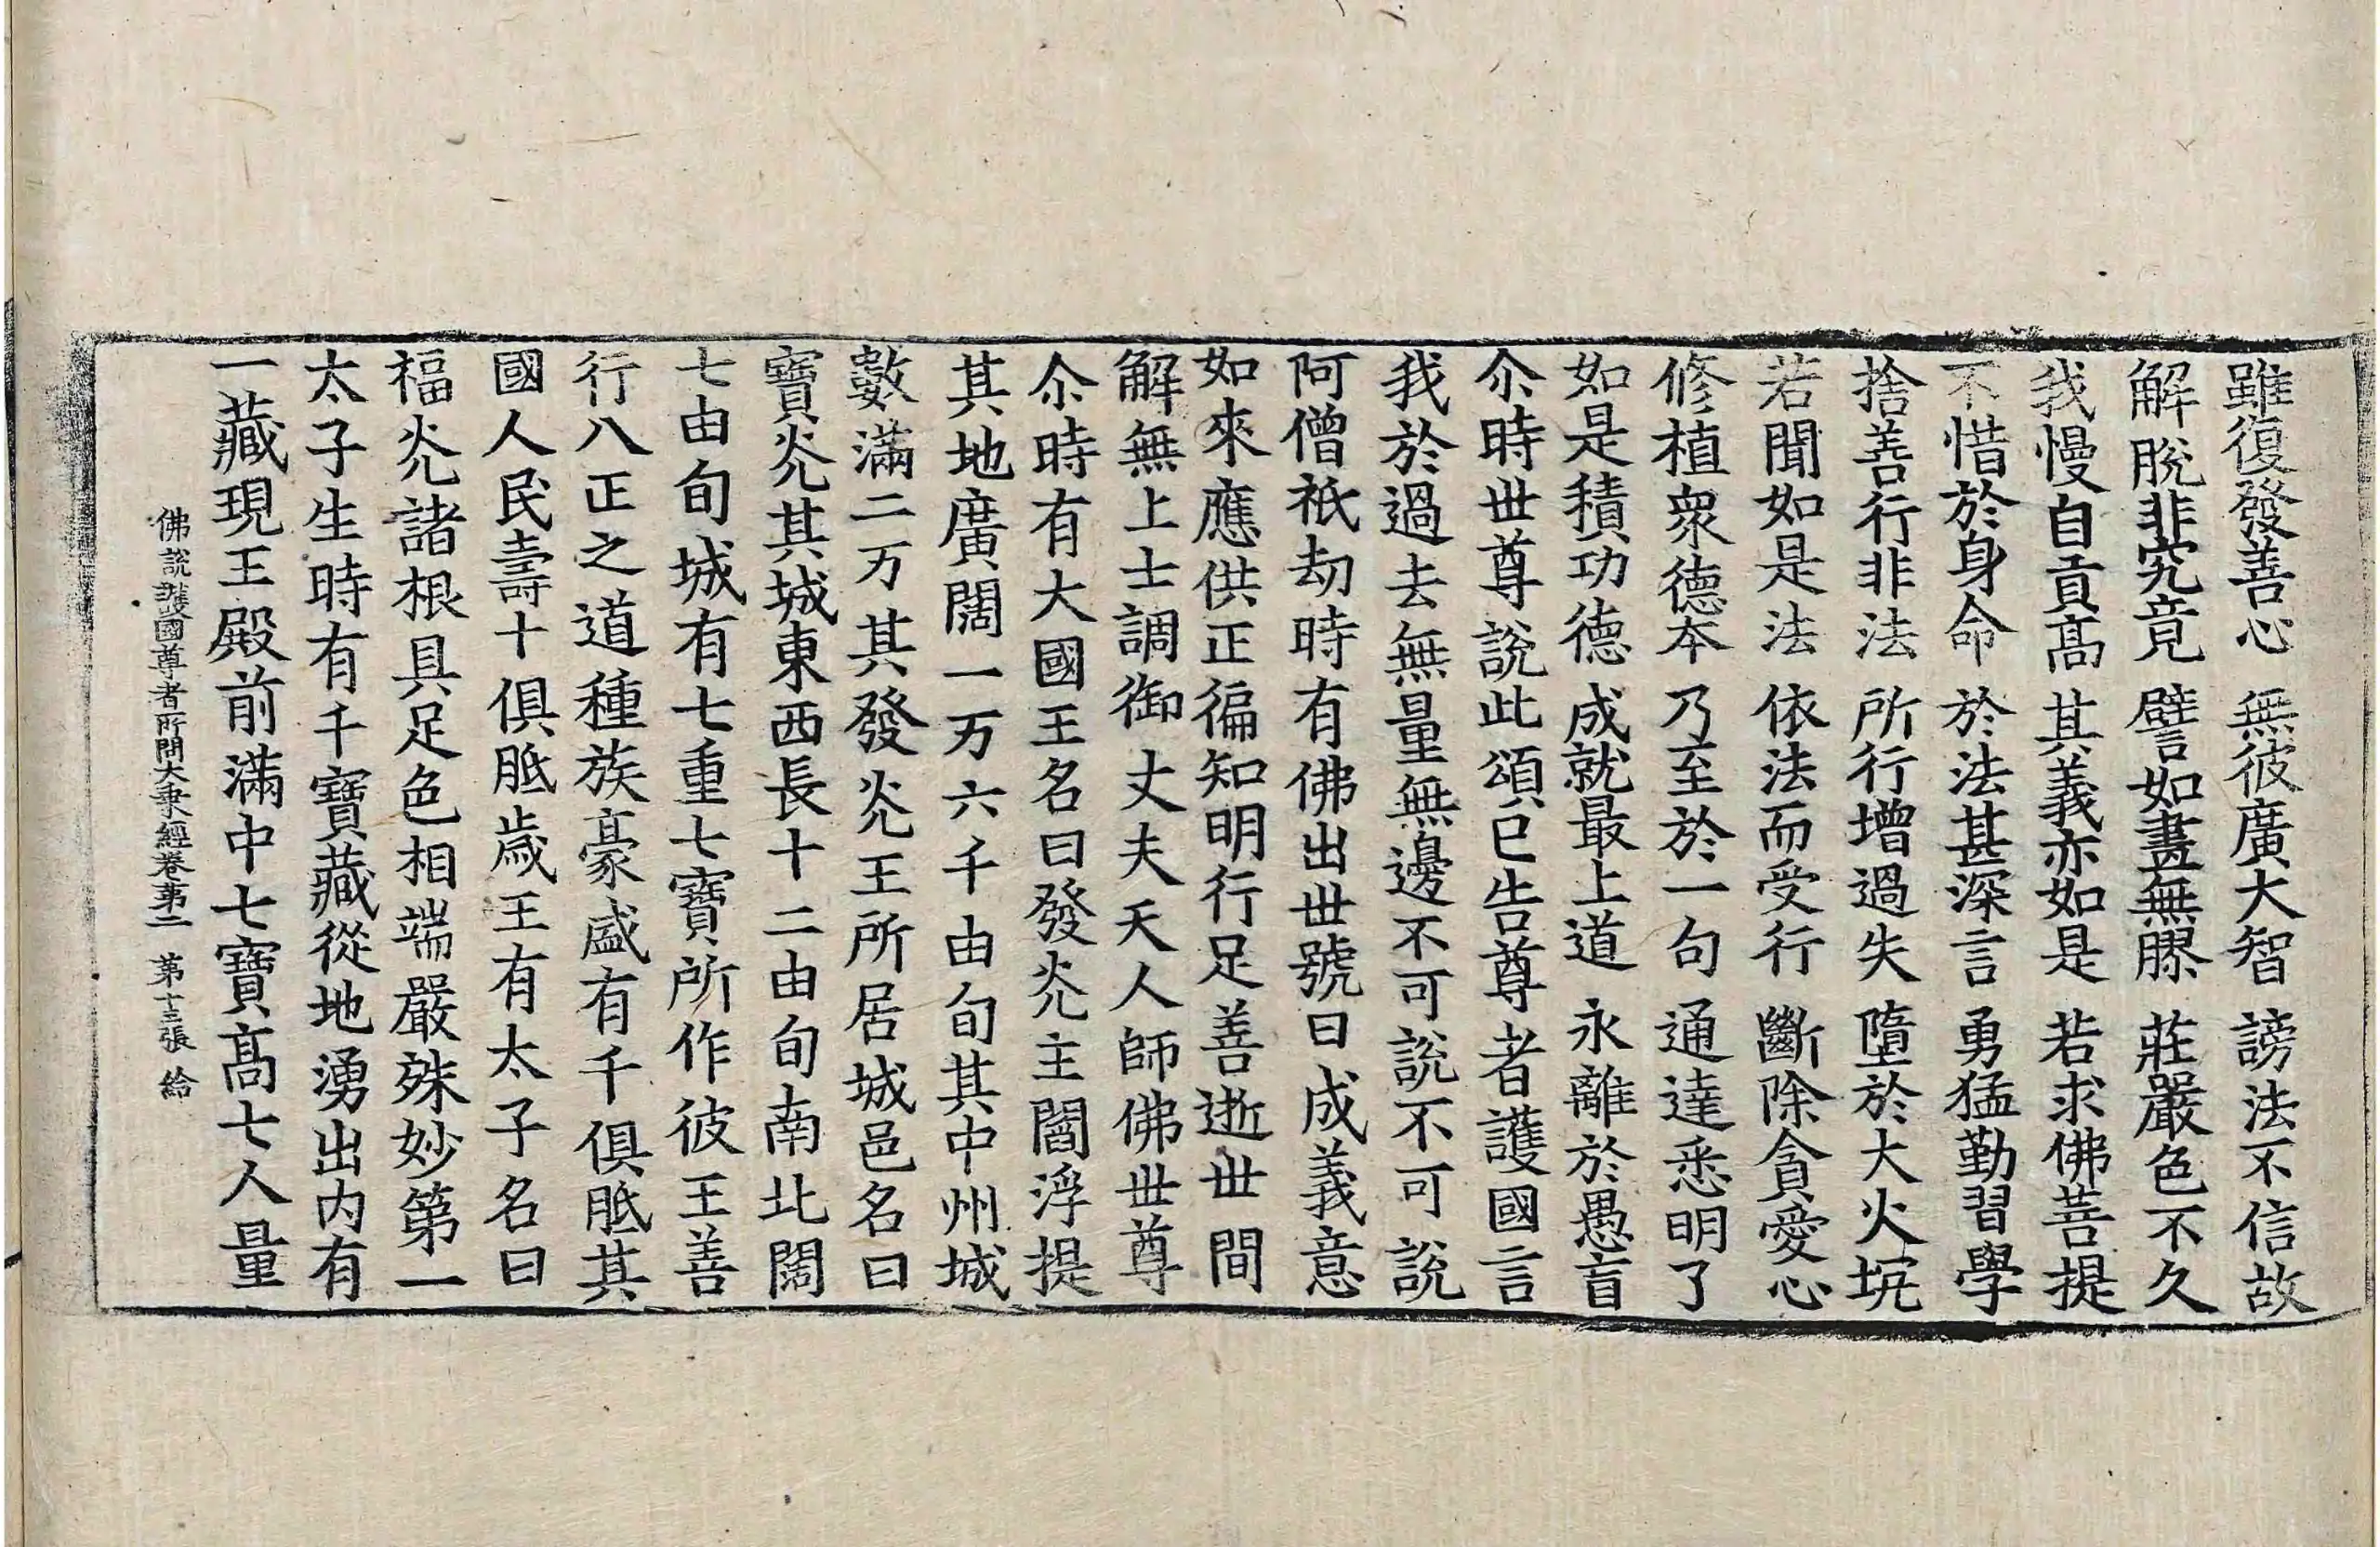 雖復發善心　無彼廣大智　謗法不信故
解脫非究竟　譬如畫無膠　莊嚴色不久
我慢自貢髙　其義亦如是　若求佛菩提
不惜於身命　於法甚深言　勇猛勤習學
捨善行非法　所行增過失　墮於大火坑
若聞如是法　依法而受行　斷除貪愛心
修植衆德本　乃至於一句　通達悉明了
如是積功德　成就最上道　永離於愚盲
尒時世尊說此頌已告尊者護國言
我於過去無量無邊不可說不可說
阿僧祇劫時有佛出世號曰成義意
如來應供正徧知明行足善逝世間
解無上士調御丈夫天人師佛世尊
尒時有大國王名曰發炗主閻浮提
其地廣闊一万六千由旬其中州城
數滿二万其發炗王所居城邑名曰
寶炗其城東西長十二由旬南北闊
七由旬城有七重七寶所作彼王善
行八正之道種族豪盛有千俱胝其
國人民壽十俱胝歲王有太子名曰
福炗諸根具足色相端嚴殊妙第一
太子生時有千寶藏從地湧出内有
一藏現王殿前滿中七寶髙七人量
佛說護國尊者所問大乗經卷苐二　苐十三張　給